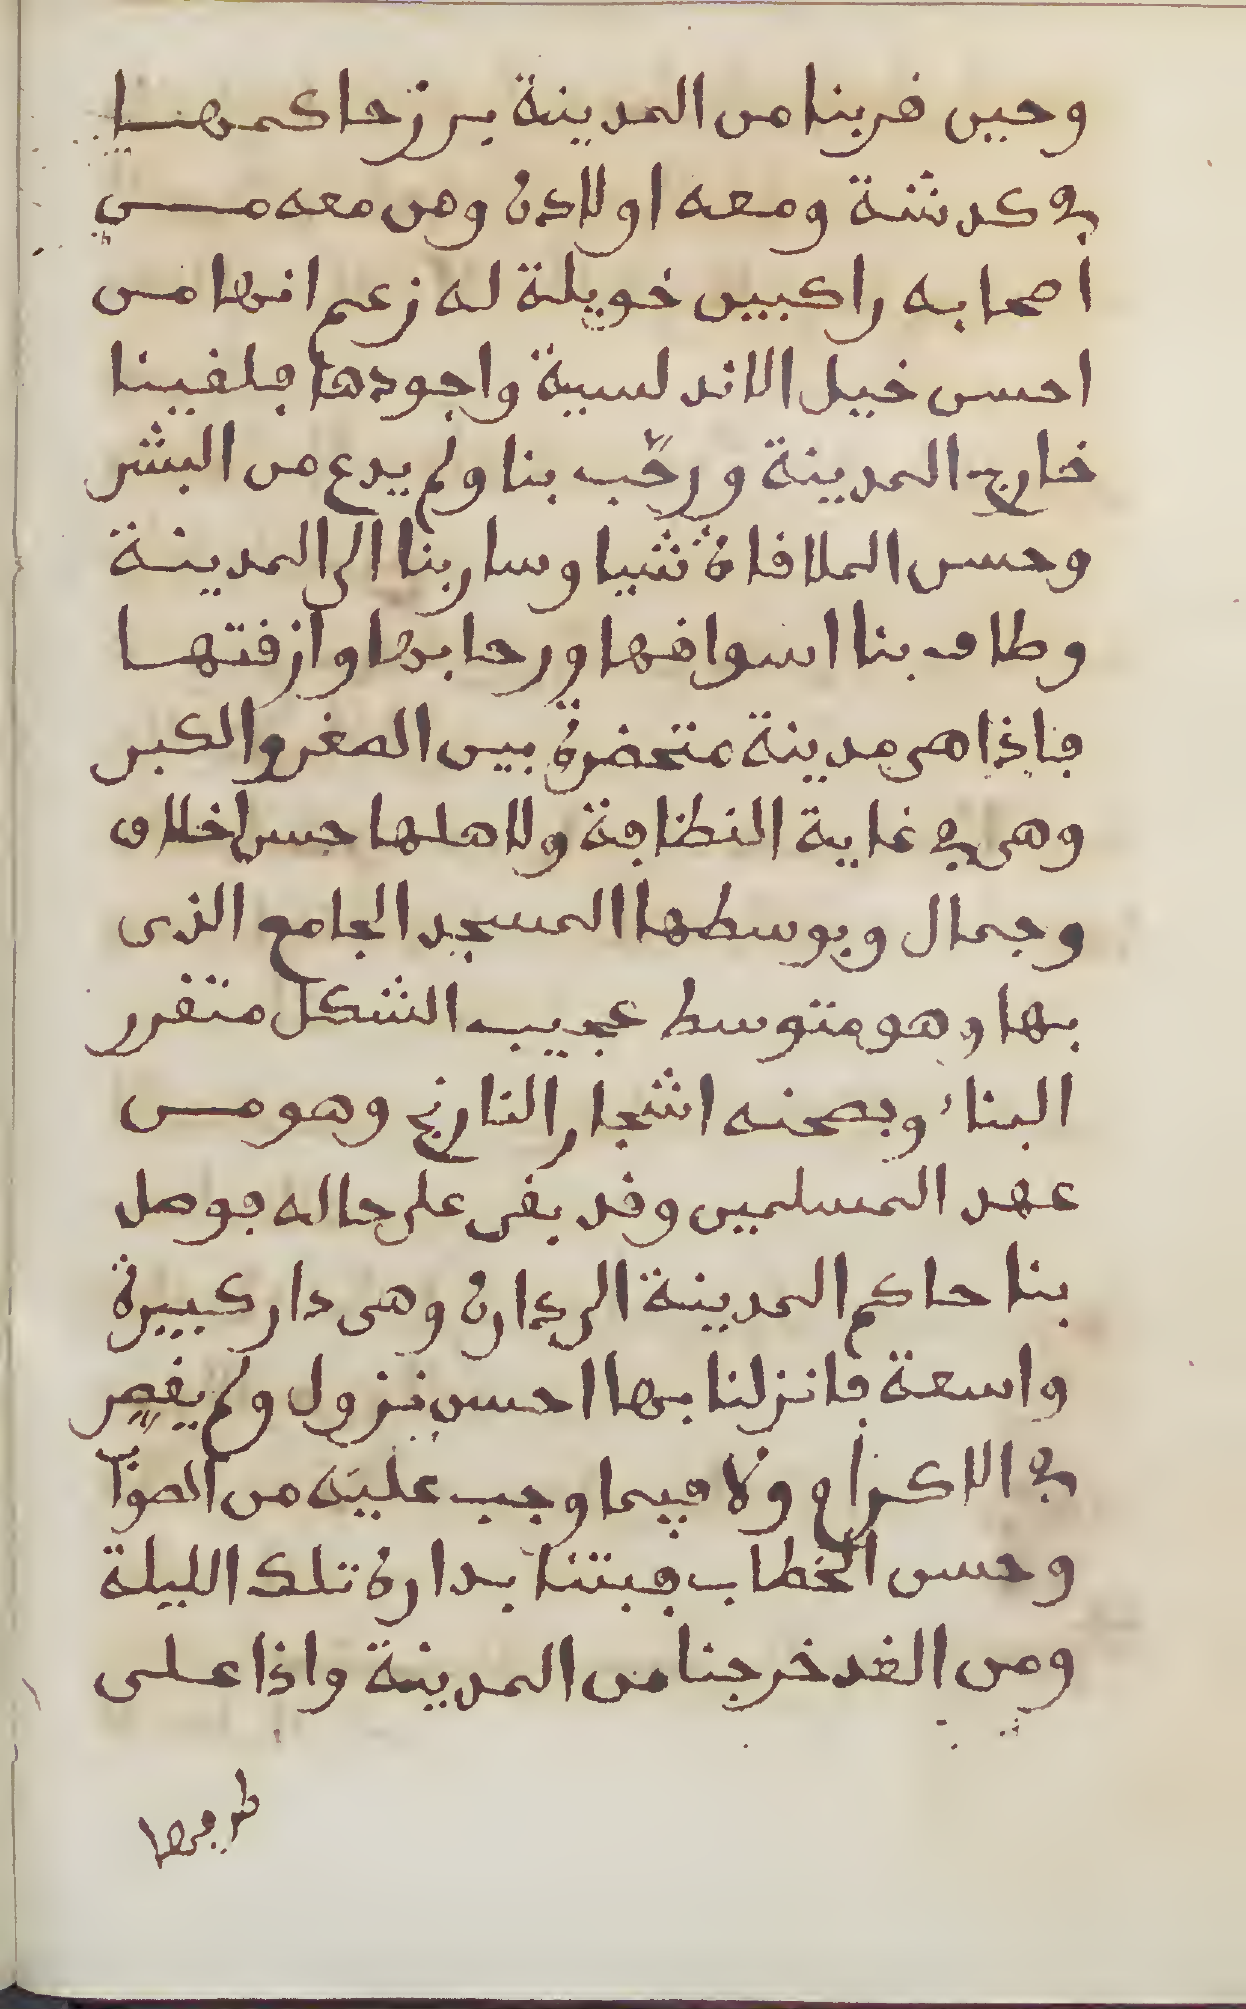 وحين قربنا من المدينة برز حاكمها
في كدشة ومعه اولاده ومن معه من
اصحابه راكبين خويلة له زعم انها من
احسن خيل الاندلسية واجودها فلقينا
خارج المدينة ورحّب بنا ولم يدع من البشر
وحسن الملاقاة شيا وسار بنا الى المدينة
وطاف بنا اسواقها ورحابها وازقتها
فاذا هي مدينة متحضرة بين الصغر والكبر
وهي في غاية النظافة ولاهلها حسن اخلاق
وجمال وبوسطها المسجد الجامع الذى
بها وهو متوسط عجيب الشكل متقرر
البناء وبصحنه اشجار النارنج وهو من
عهد المسلمين وقد بقى على حاله فوصل
بنا حاكم المدينة الى داره وهى دار كبيرة
واسعة فانزلنا بها احسن نزول ولم يقصر
في الاكرام ولا فيما وجب عليه من الصواب
وحسن الخطاب فبتنا بداره تلك الليلة
ومن الغد خرجنا من المدينة واذا على
طريقها